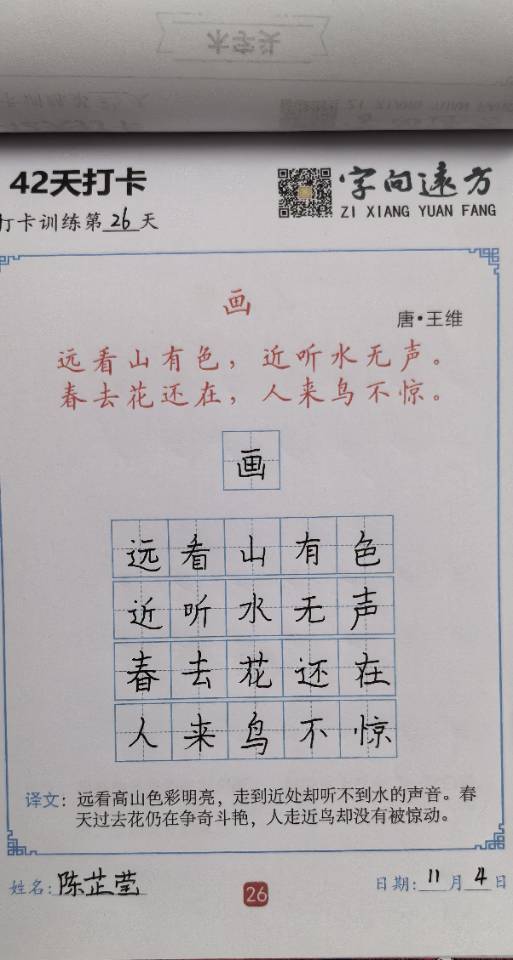 木字头
42天打卡
字向远方
ZI XIANG YUAN FANG
打卡训练第26天
画
唐·王维
远看山有色，近听水无声。
春去花还在，人来鸟不惊。
画
远看山有色
近听水无声
春去花还在
人来鸟不惊
译文：远看高山色彩明亮，走到近处却听不到水的声音。春
天过去花仍在争奇斗艳，人走近鸟却没有被惊动。
姓名：陈芷莹
26
日期：11月4日